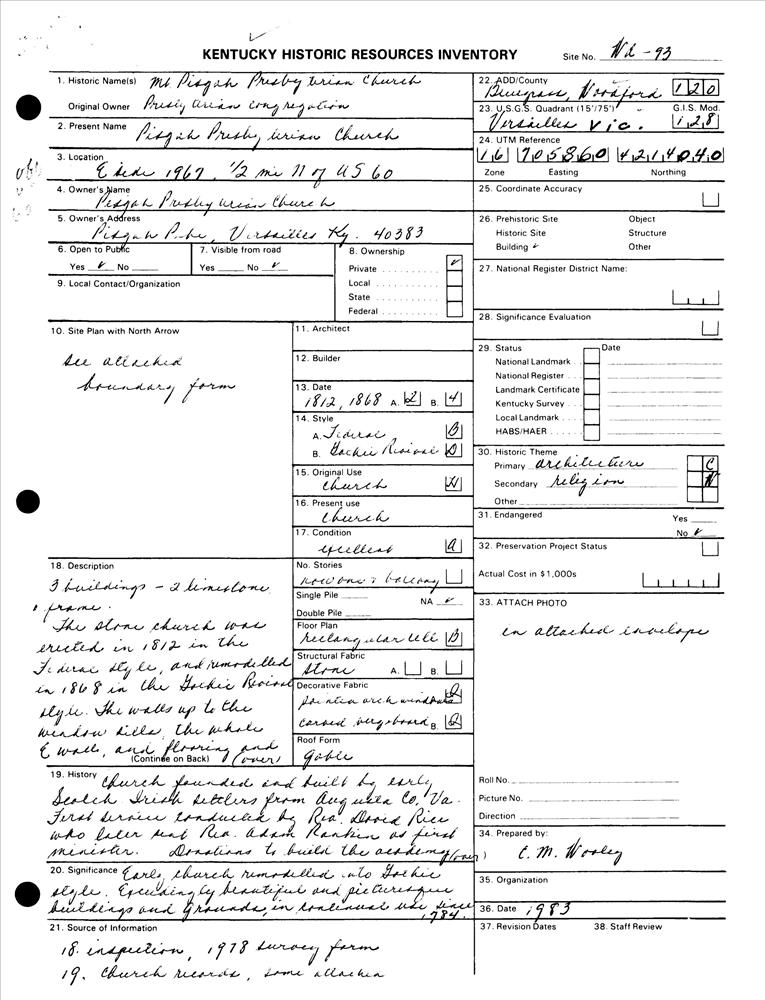 KENTUCKY HISTORIC RESOURCES INVENTORY
Site No. Wd-93
1. Historic Name(s) Mt Pisgah Presbyterian Church
Original Owner Presbyterian congregation
2. Present Name Pisgah Presbyterian Church
3. Location
E side 1967, 1/2 mi N of US 60
4. Owner's Name
Pisgah Presbyterian Church
5. Owner's Address
Pisgah Pike, Versailles Ky. 40383
6. Open to Public
Yes ✓ No
7. Visible from road
Yes No ✓
8. Ownership
Private ✓
Local
State
Federal
9. Local Contact/Organization
10. Site Plan with North Arrow
see attached
boundary form
11. Architect
12. Builder
13. Date
1812, 1868 A. 2 B. 4
14. Style
A. Federal B
B. Gothic Revival D
15. Original Use
church
16. Present use
church
17. Condition
excellent A
18. Description
3 buildings - 2 limestone
1 frame.
The stone church was
erected in 1812 in the
Federal style, and remodelled
in 1868 in the Gothic Revival
style. The walls up to the
window sills, the whole
E wall, and flooring and
(Continue on Back) (over)
No. Stories
now one & balcony
Single Pile NA ✓
Double Pile
Floor Plan
rectangular cell B
Structural Fabric
Stone A. B.
Decorative Fabric
pointed arch windows
carved vergeboard B. 2
Roof Form
Gable
19. History Church founded and built by early
Scotch Irish settlers from Augusta Co, Va.
First service conducted by Rev. David Rice
who later sent Rev. Adam Rankin as first
minister. Donations to build the academy (over)
20. Significance Early church remodelled into Gothic
style. Exceedingly beautiful and picturesque
buildings and grounds, in continual use since
1784.
21. Source of Information
18. inspection, 1978 survey form
19. Church records, some attached
22. ADD/County
Bluegrass, Woodford 120
23. U.S.G.S. Quadrant (15'/75') G.I.S. Mod.
Versailles Vic. 128
24. UTM Reference
16 705860 4214040
Zone Easting Northing
25. Coordinate Accuracy
26. Prehistoric Site Object
Historic Site Structure
Building ✓ Other
27. National Register District Name:
28. Significance Evaluation
29. Status Date
National Landmark
National Register
Landmark Certificate
Kentucky Survey
Local Landmark
HABS/HAER
30. Historic Theme
Primary architecture C
Secondary religion N
Other
31. Endangered Yes
No ✓
32. Preservation Project Status
Actual Cost in $1,000s
33. ATTACH PHOTO
in attached envelope
Roll No.
Picture No.
Direction
34. Prepared by:
C. M. Wooley
35. Organization
36. Date 1983
37. Revision Dates 38. Staff Review